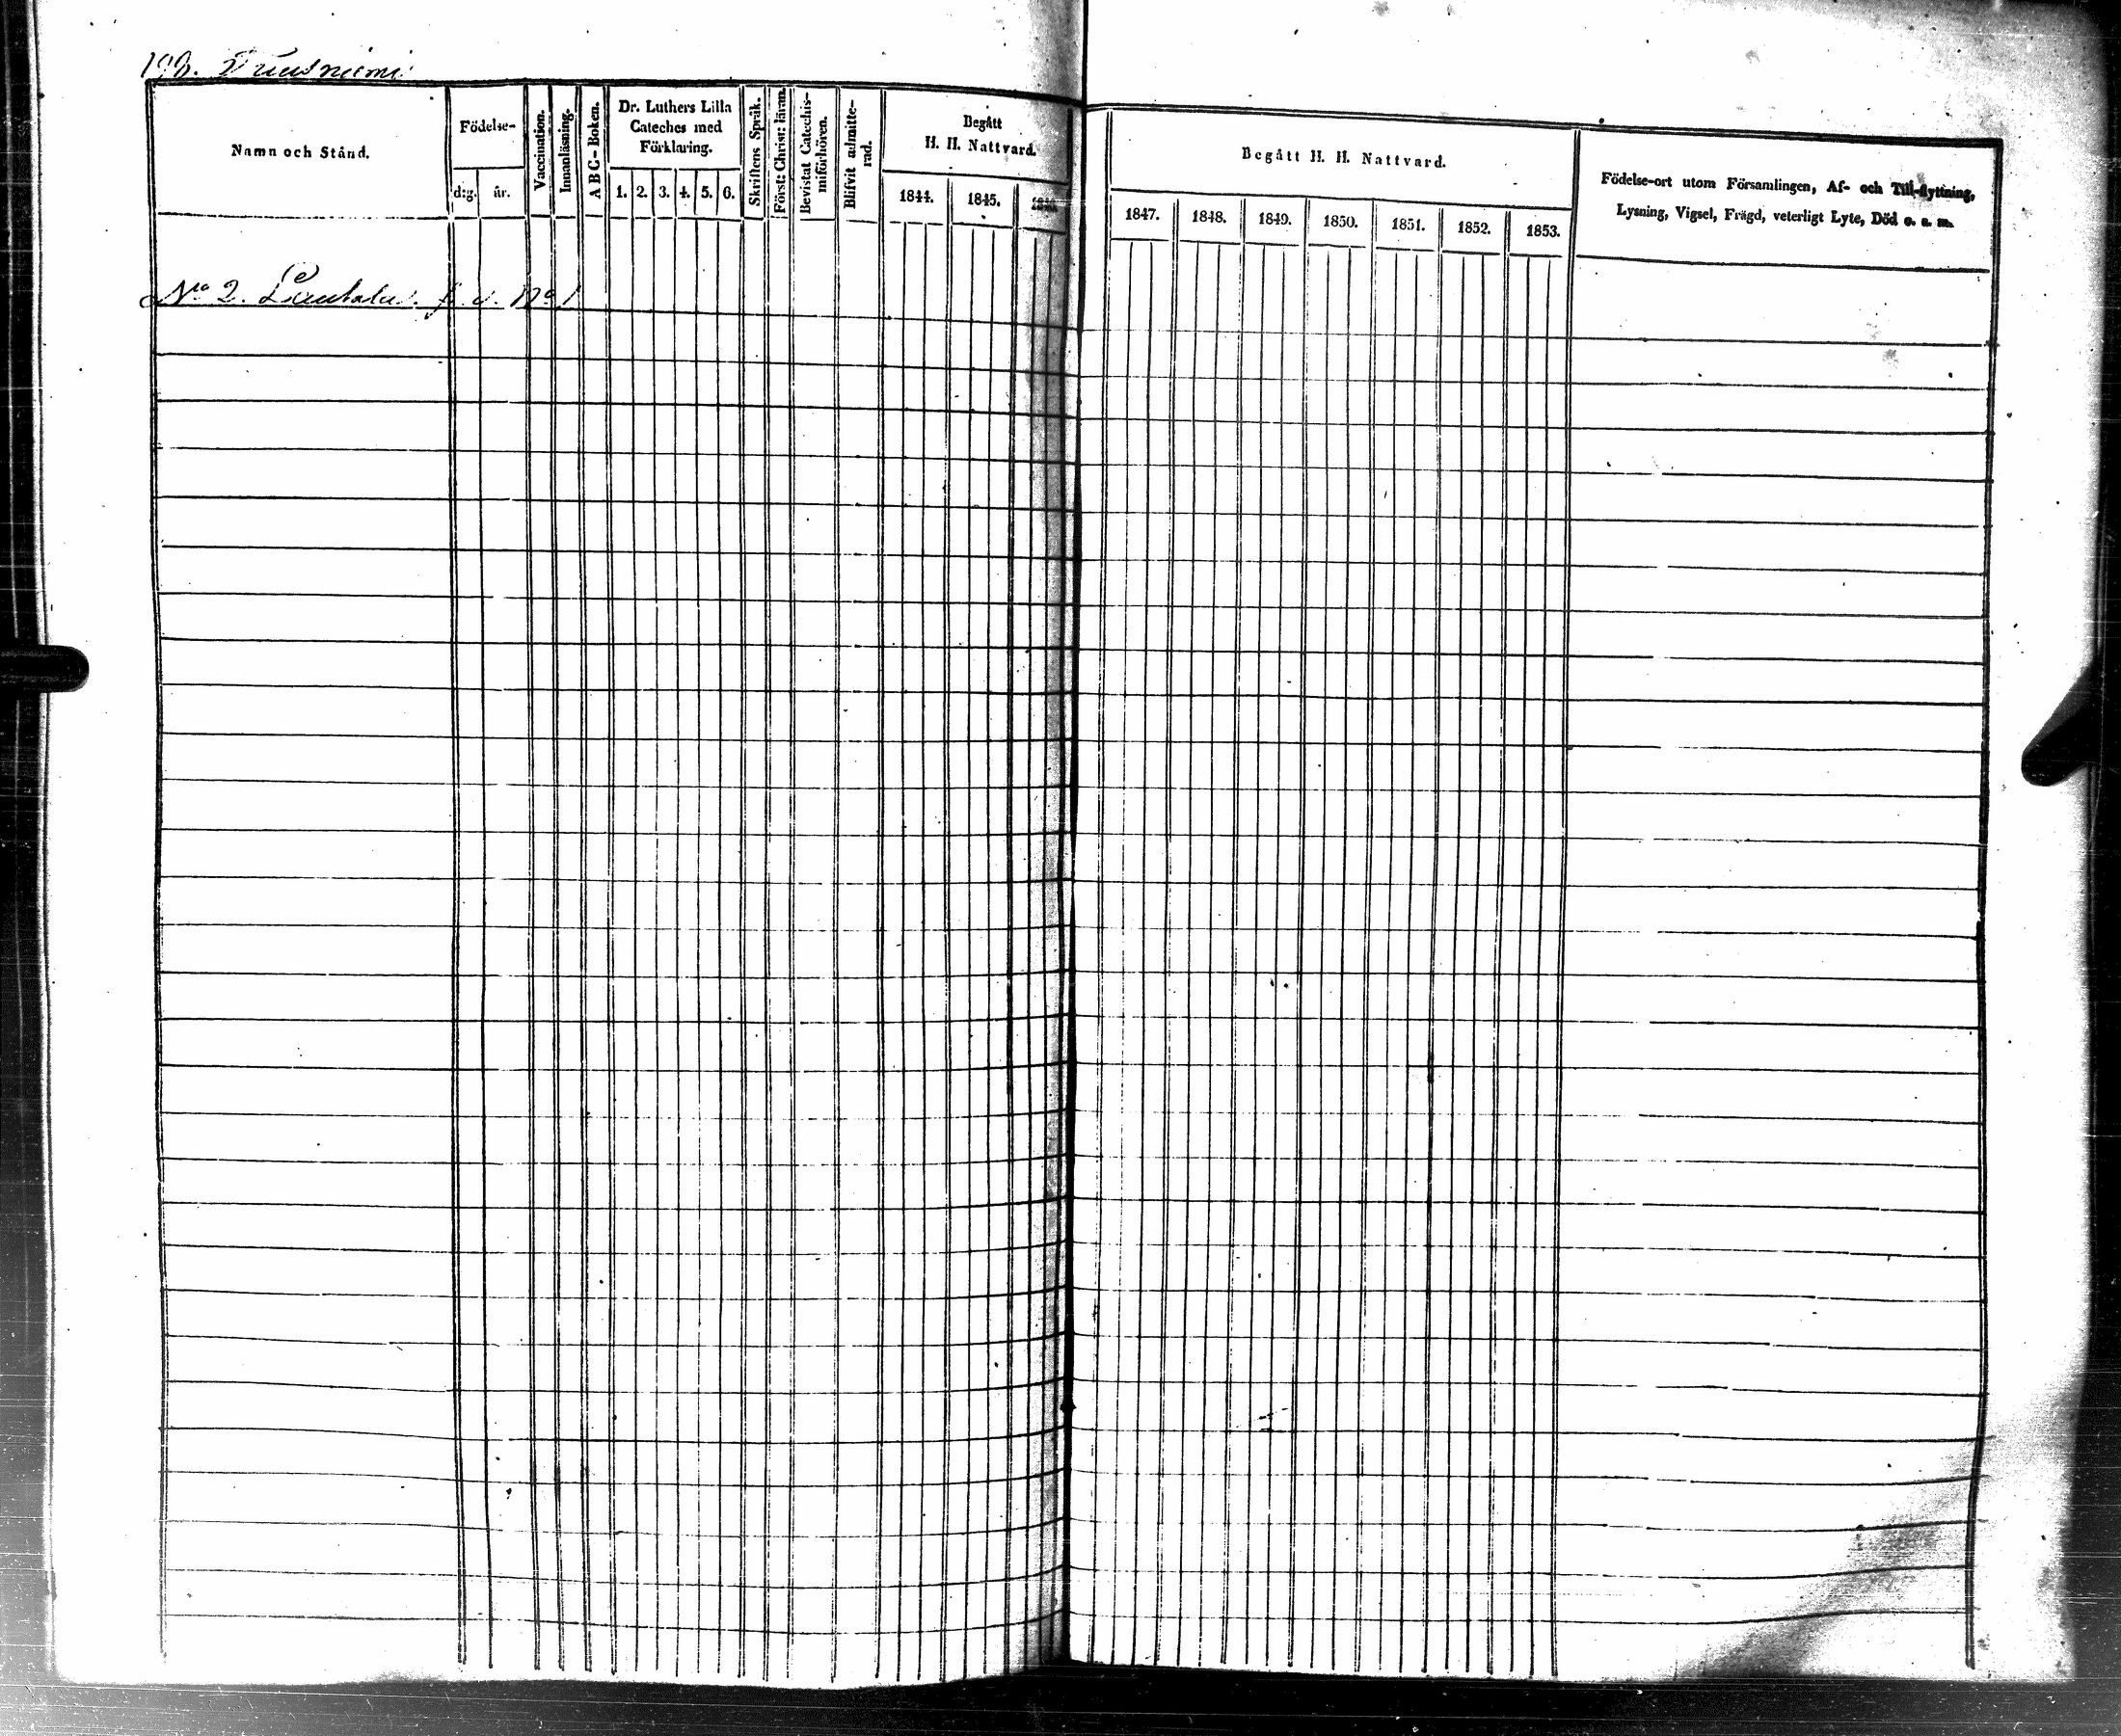 Namn och Stånd.
Födelse-
d:g. år.
Vaccination.
Innanläsning.
A B C - Boken.
Dr. Luthers Lilla
Cateches med
Förklaring.
1. 2. 3. 4. 5. 6.
Skriftens Språk.
Först: Christ: läran.
Bevistat Catechis-
miförhören.
Blifvit admitte-
rad.
Begått
H. H. Nattvard.
1844. 1845. 1846.
Begått H. H. Nattvard.
1847. 1848. 1849. 1850. 1851. 1852. 1853.
Födelse-ort utom Församlingen, Af- och Till-flyttning,
Lysning, Vigsel, Frägd, veterligt Lyte, Död o. s. m.
No 2.